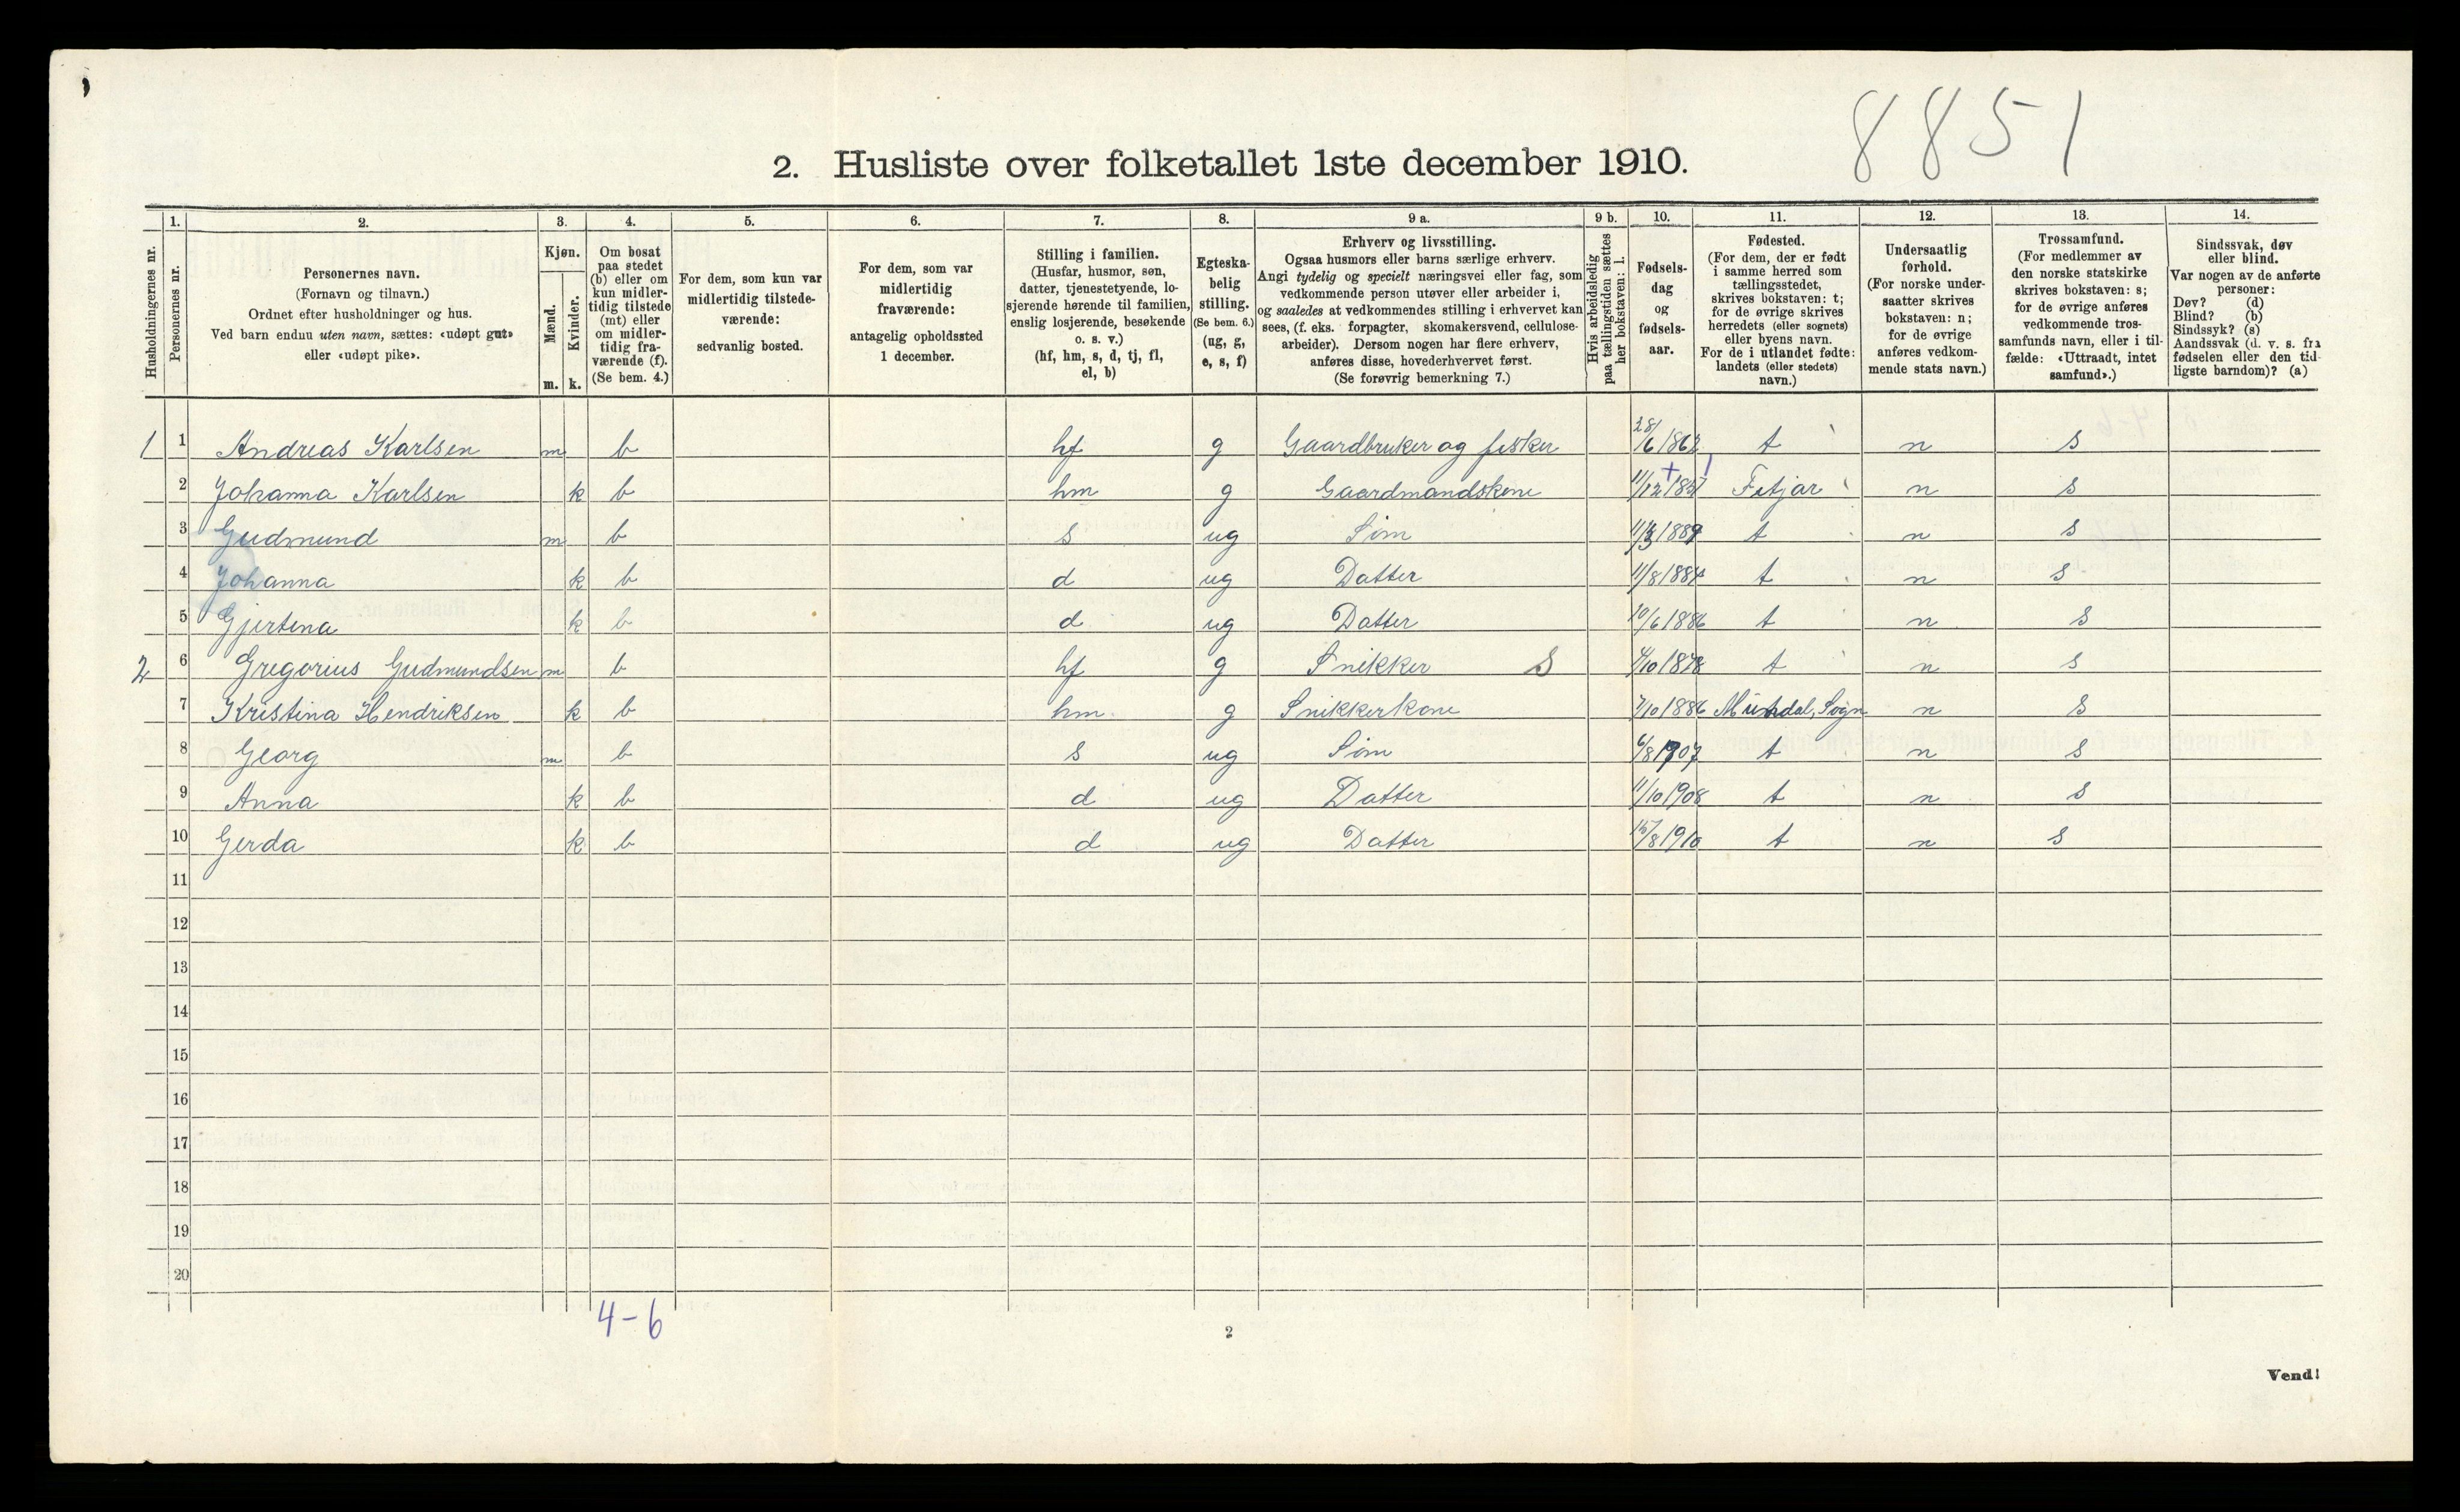 8851
2. Husliste over folketallet 1ste december 1910.
1. 2. 3. 4. 5. 6. 7. 8. 9 a. 9 b. 10. 11. 12. 13. 14.
Husholdningernes nr.
Personernes nr.
Personernes navn.
(Fornavn og tilnavn.)
Ordnet efter husholdninger og hus.
Ved barn endnu uten navn, sættes: «udøpt gut»
eller «udøpt pike».
Kjøn.
Mænd.
Kvinder.
m. k.
Om bosat
paa stedet
(b) eller om
kun midler-
tidig tilstede
(mt) eller
om midler-
tidig fra-
værende (f).
(Se bem. 4.)
For dem, som kun var
midlertidig tilstede-
værende:
sedvanlig bosted.
For dem, som var
midlertidig
fraværende:
antagelig opholdssted
1 december.
Stilling i familien.
(Husfar, husmor, søn,
datter, tjenestetyende, lo-
sjerende hørende til familien,
enslig losjerende, besøkende
o. s. v.)
(hf, hm, s, d, tj, fl,
el, b)
Egteska-
belig
stilling.
(Se bem. 6.)
(ug, g,
e, s, f)
Erhverv og livsstilling.
Ogsaa husmors eller barns særlige erhverv.
Angi tydelig og specielt næringsvei eller fag, som
vedkommende person utøver eller arbeider i,
og saaledes at vedkommendes stilling i erhvervet kan
sees, (f. eks. forpagter, skomakersvend, cellulose-
arbeider). Dersom nogen har flere erhverv,
anføres disse, hovederhvervet først.
(Se forøvrig bemerkning 7.)
Hvis arbeidsledig
paa tællingstiden sættes
her bokstaven: l.
Fødsels-
dag
og
fødsels-
aar.
Fødested.
(For dem, der er født
i samme herred som
tællingsstedet,
skrives bokstaven: t;
for de øvrige skrives
herredets (eller sognets)
eller byens navn.
For de i utlandet fødte:
landets (eller stedets)
navn.)
Undersaatlig
forhold.
(For norske under-
saatter skrives
bokstaven: n;
for de øvrige
anføres vedkom-
mende stats navn.)
Trossamfund.
(For medlemmer av
den norske statskirke
skrives bokstaven: s;
for de øvrige anføres
vedkommende tros-
samfunds navn, eller i til-
fælde: «Uttraadt, intet
samfund».)
Sindssvak, døv
eller blind.
Var nogen av de anførte
personer:
Døv? (d)
Blind? (b)
Sindssyk? (s)
Aandssvak (d. v. s. fra
fødselen eller den tid-
ligste barndom)? (a)
1 1 Andreas Karlsen m b hf g Gaardbruker og fisker 28/6 1862 t n s
2 Johanna Karlsen k b hm g Gaardmandskone 11/12 Fitjar n s
3 Gudmund m b s ug Søn t n s
4 Johanna k b d ug Datter 11/8 1884 t n s
5 Gjertina k b d ug Datter 10/6 1886 t n s
2 6 Gregorius Gudmundsen m b hf g Snikker S 4/10 1878 t n s
7 Kristina Hendriksen k b hm g Snikkerkone 7/10 1886 Mundal, Sogn n s
8 Georg m b s ug Søn 6/8 1907 t n s
9 Anna k b d ug Datter 11/10 1908 t n s
10 Gerda k b d ug Datter 15/8 1910 t n s
11
12
13
14
15
16
17
18
19
20
4-6
2
Vend!